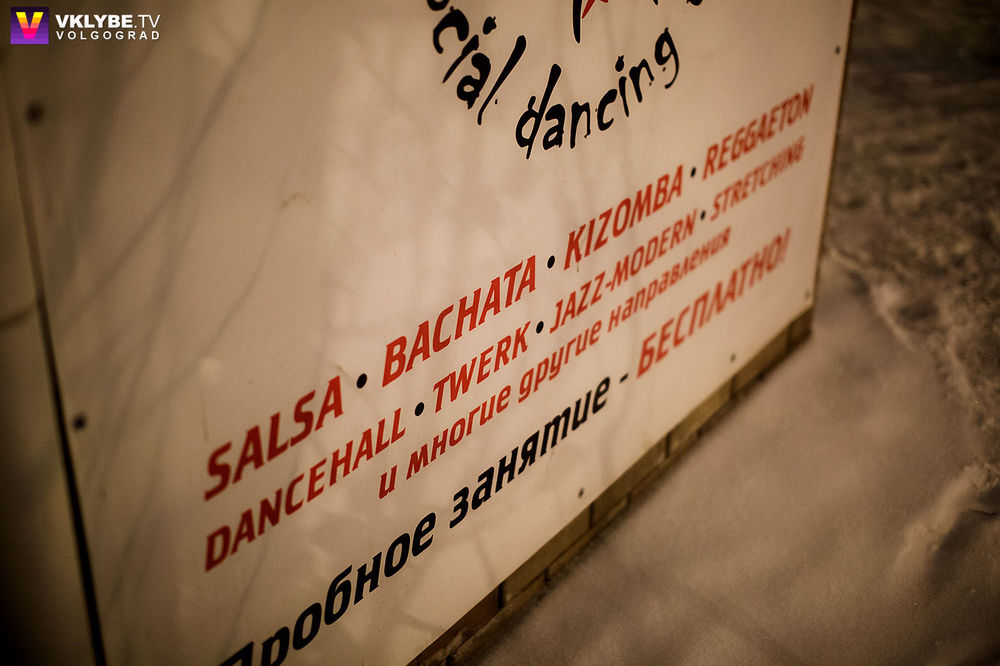 VKLYBE.TV
VOLGOGRAD
social dancing
SALSA • BACHATA • KIZOMBA • REGGAETON
DANCEHALL • TWERK • JAZZ-MODERN • STRETCHING
и многие другие направления
Пробное занятие - БЕСПЛАТНО!